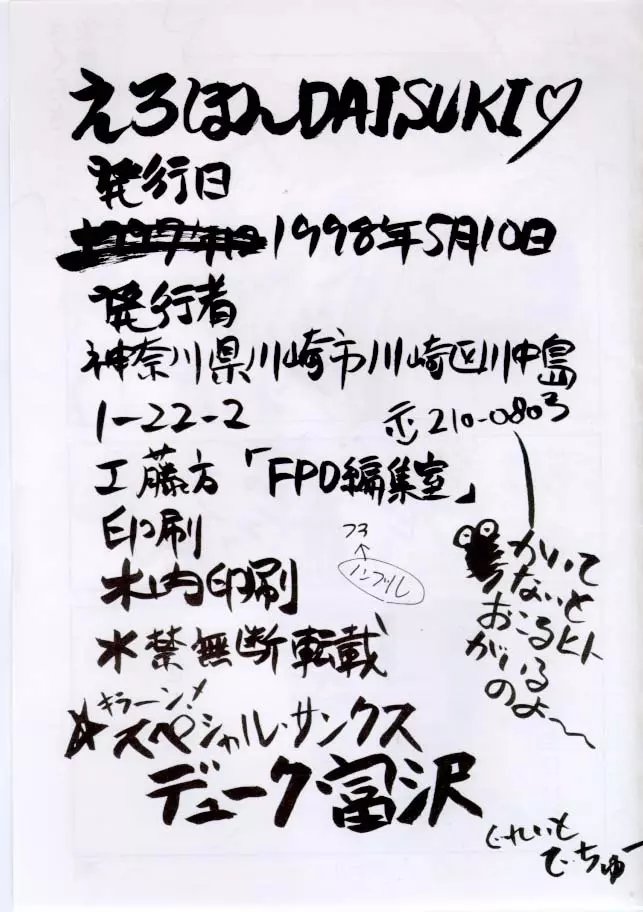 えろほんDAISUKI♡
発行日
1998年5月10日
発行者
神奈川県川崎市川崎区川中島
1-22-2 〒210-0803
工藤方「FPO編集室」
印刷
木内印刷
水禁無断転載
キラーン!
☆スペシャル・サンクス
デューク富沢
73
ノンブル
かいて
ないと
おこるヒト
がいる
のよ〜
ぐれいと
でちゅー